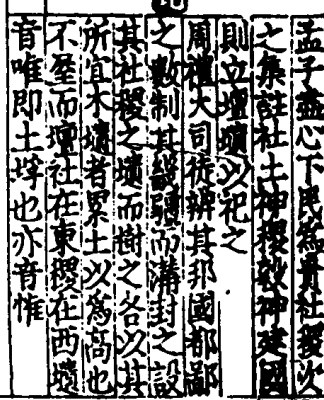 孟子盡心下民爲貴社稷次
之集註社土神稷穀神建國
則立壇壝以祀之
周禮大司徒辨其邦國都鄙
之數制其畿疆而溝封之設
其社稷之壝而樹之各以其
所宜木壝者累土以爲高也
不屋而壇社在東稷在西壝
音唯卽土埒也亦音惟